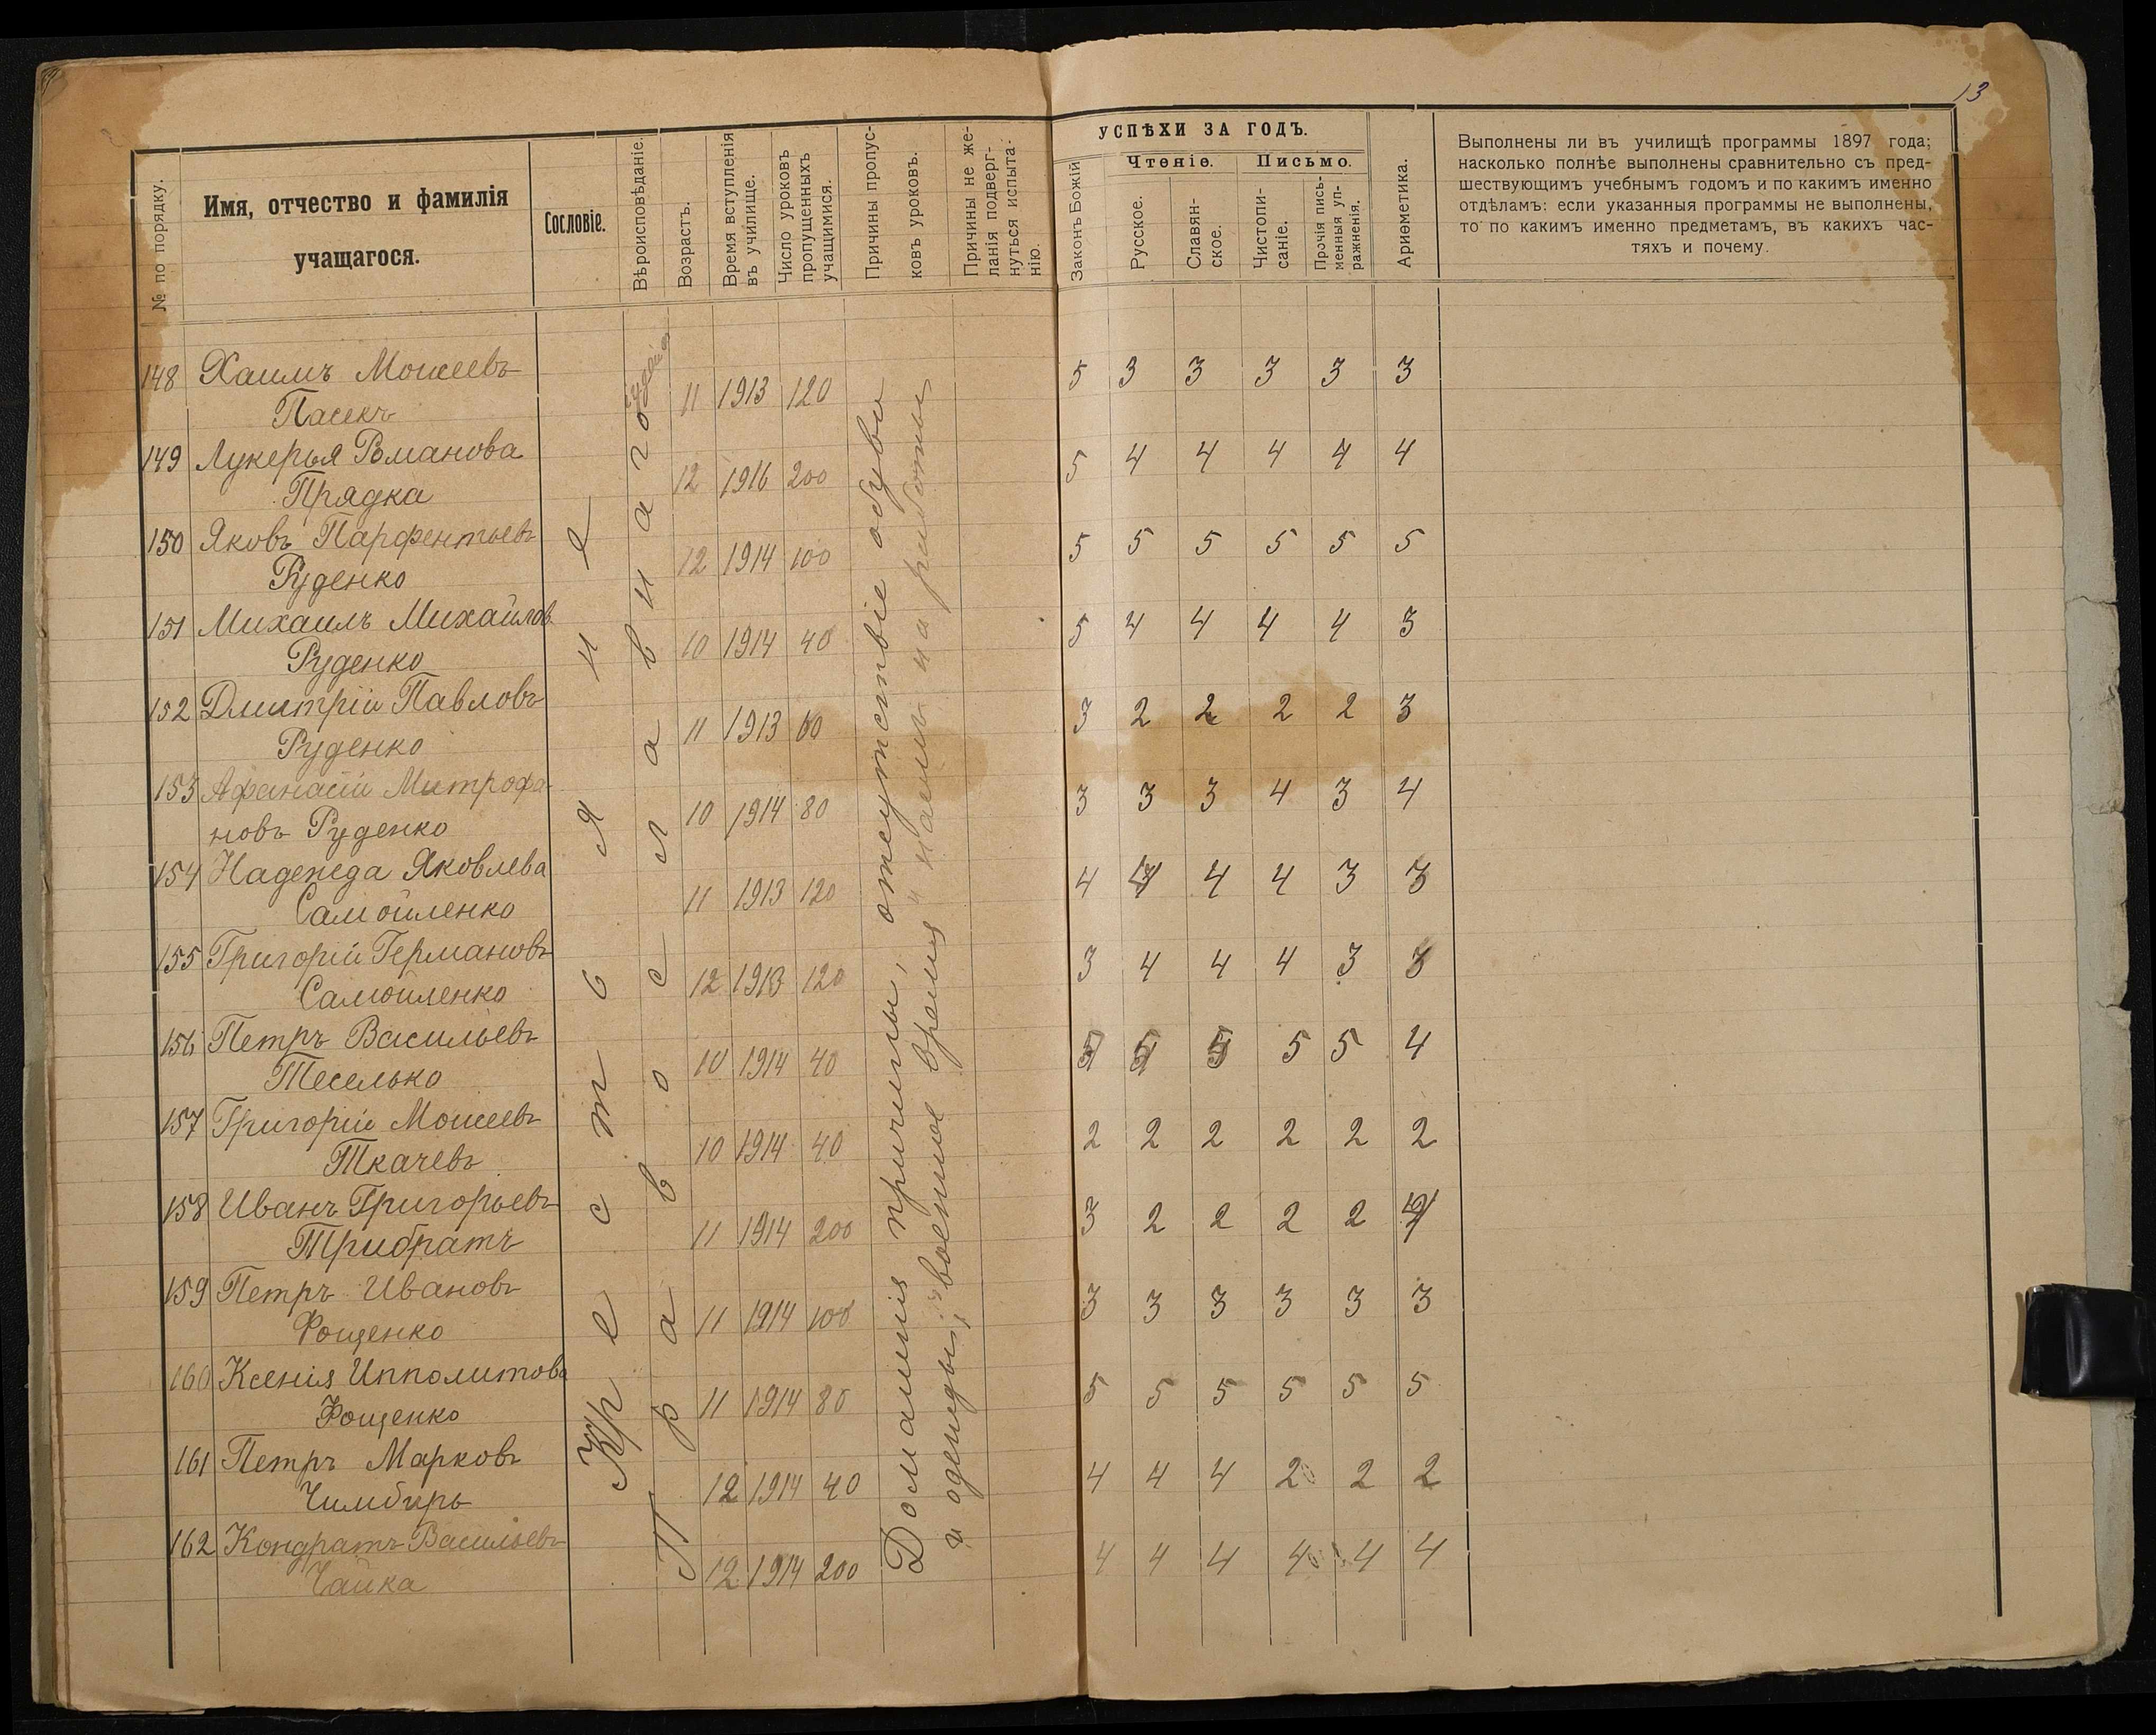 13
№ по порядку.
Имя, отчество и фамилія
учащагося.
Сословіе.
Вѣроисповѣданіе.
Возрастъ.
Время вступленія
въ училище.
Число уроковъ
пропущенныхъ
учащимися.
Причины пропус-
ковъ уроковъ.
Причины не же-
ланія подверг-
нуться испыта-
нію.
УСПѢХИ ЗА ГОДЪ.
Законъ Божій
Чтеніе.
Письмо.
Русское.
Славян-
ское.
Чистопи-
саніе.
Прочія пись-
менныя уп-
ражненія.
Ариѳметика.
Выполнены ли въ училищѣ программы 1897 года;
насколько полнѣе выполнены сравнительно съ пред-
шествующимъ учебнымъ годомъ и по какимъ именно
отдѣламъ: если указанныя программы не выполнены,
то по какимъ именно предметамъ, въ какихъ час-
тяхъ и почему.
Крестьяне
Православнаго
Домашнія причины, отсутствіе обуви
и одежды, военное время и наемъ на работы
148 Хаимъ Моисеевъ
Пасекъ 11 1913 120 5 3 3 3 3 3
149 Лукерья Романова
Прядка 12 1916 200 5 4 4 4 4 4
150 Яковъ Парфентьевъ
Руденко 12 1914 100 5 5 5 5 5 5
151 Михаилъ Михайлов
Руденко 10 1914 40 5 4 4 4 4 3
152 Дмитрій Павловъ
Руденко 11 1913 60 3 2 2 2 2 3
153 Афанасій Митрофа-
новъ Руденко 10 1914 80 3 3 3 4 3 4
154 Надежда Яковлева
Самойленко 11 1913 120 4 4 4 4 3 3
155 Григорій Германовъ
Самойленко 12 1913 120 3 4 4 4 3 3
156 Петръ Васильевъ
Теселько 10 1914 40 5 5 5 5 5 4
157 Григорій Моисеевъ
Ткачевъ 10 1914 40 2 2 2 2 2 2
158 Иванъ Григорьевъ
Трибратъ 11 1914 200 3 2 2 2 2
159 Петръ Ивановъ
Фощенко 11 1914 100 3 3 3 3 3 3
160 Ксенія Ипполитова
Фощенко 11 1914 80 5 5 5 5 5 5
161 Петръ Марковъ
Чимбирь 12 1914 40 4 4 4 2 2 2
162 Кондратъ Васильевъ
Чайка 12 1914 200 4 4 4 4 4 4